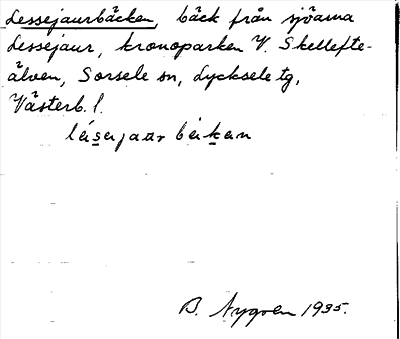 Lessejaurbäcken, bäck från sjöarna
Lessejaur, kronoparken V. Skellefte-
älven, Sorsele sn, Lycksele tg,
Västerb. l.
B. Nygren 1935.